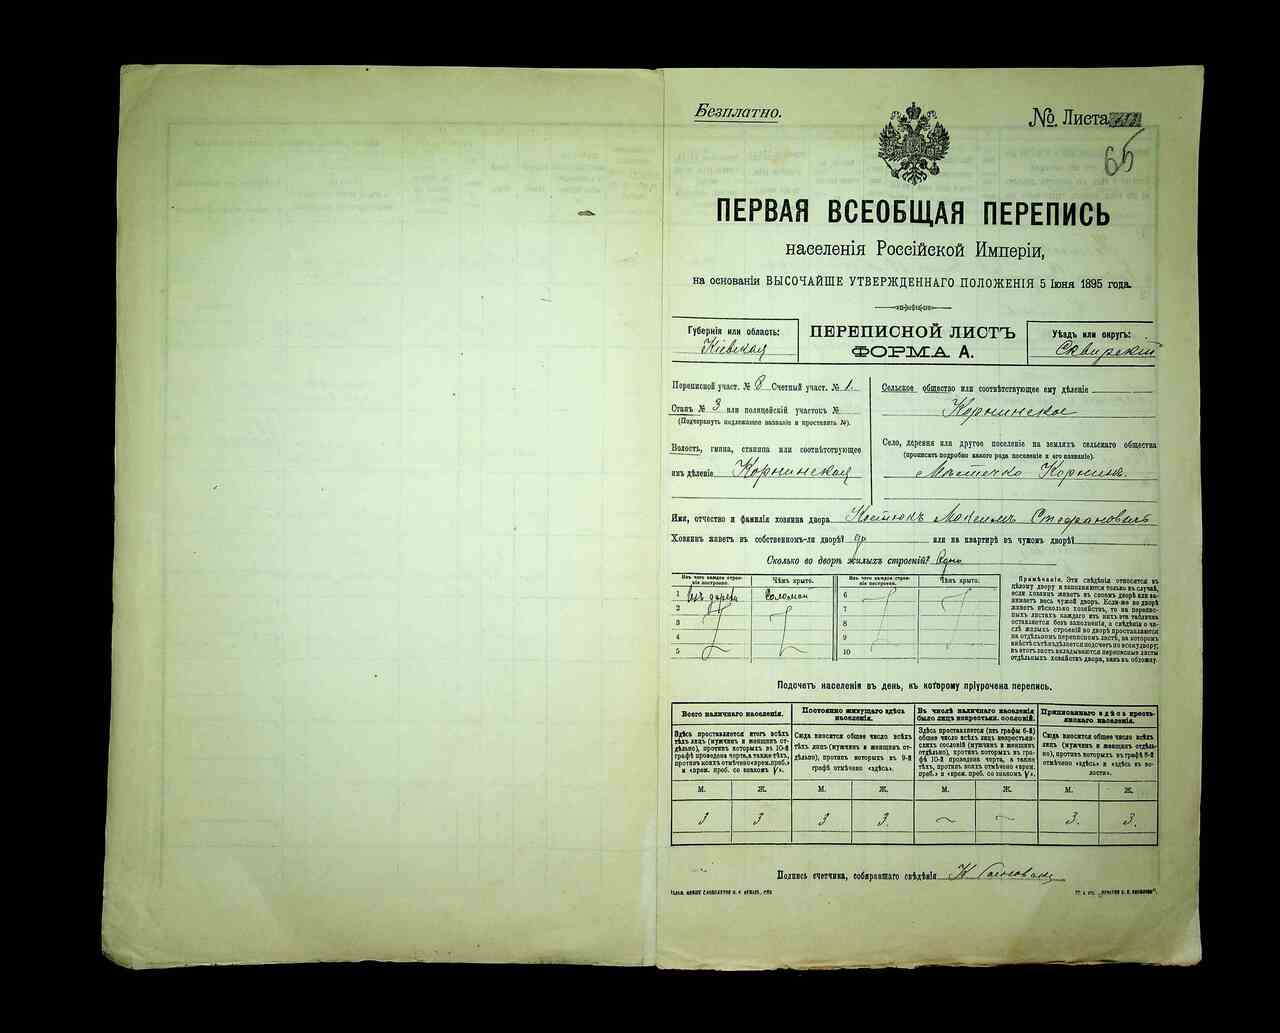 Безплатно.
№ Листа
65
ПЕРВАЯ ВСЕОБЩАЯ ПЕРЕПИСЬ
населенія Россійской Имперіи,
на основаніи ВЫСОЧАЙШЕ УТВЕРЖДЕННАГО ПОЛОЖЕНІЯ 5 Іюня 1895 года.
Губернія или область:
Кіевская
ПЕРЕПИСНОЙ ЛИСТЪ
ФОРМА А.
Уѣздъ или округъ:
Сквирскій
Переписной участ. № 8 Счетный участ. № 1.
Станъ № 3 или полицейскій участокъ №
(Подчеркнуть надлежащее названіе и проставить №).
Волость, гмина, станица или соотвѣтствующее
имъ дѣленіе Корнинская
Сельское общество или соотвѣтствующее ему дѣленіе
Корнинское
Село, деревня или другое поселеніе на земляхъ сельскаго общества
(прописать подробно какого рода поселеніе и его названіе).
Мѣстечко Корнинъ.
Имя, отчество и фамилія хозяина двора Костюкъ Максимъ Стефановичъ
Хозяинъ живетъ въ собственномъ-ли дворѣ? да или на квартирѣ въ чужомъ дворѣ?
Сколько во дворѣ жилыхъ строеній? Одно
Изъ чего каждое строеніе построено.
Чѣмъ крыто.
Изъ чего каждое строеніе построено.
Чѣмъ крыто.
1 изъ дерева Соломой 6
2 7
3 8
4 9
5 10
Примѣчаніе. Эти свѣдѣнія относятся къ
цѣлому двору и заполняются только въ случаѣ,
если хозяинъ живетъ въ своемъ дворѣ или занимаетъ
весь чужой дворъ. Если-же во дворѣ
живетъ нѣсколько хозяйствъ, то на переписныхъ
листахъ каждаго изъ нихъ эта табличка
оставляется безъ заполненія, а свѣдѣнія о числѣ
жилыхъ строеній во дворѣ проставляются
на отдѣльномъ переписномъ листѣ, на которомъ
вмѣстѣ съ тѣмъ дѣлается подсчетъ по всему двору;
въ этотъ листъ вкладываются переписные листы
отдѣльныхъ хозяйствъ двора, какъ въ обложку.
Подсчетъ населенія въ день, къ которому пріурочена перепись.
Всего наличнаго населенія.
Постоянно живущаго здѣсь населенія.
Въ числѣ наличнаго населенія было лицъ некрестьян. сословій.
Приписаннаго здѣсь крестьянскаго населенія.
Здѣсь проставляется итогъ всѣхъ
тѣхъ лицъ (мужчинъ и женщинъ отдѣльно),
противъ которыхъ въ 10-й
графѣ проведена черта, а также тѣхъ,
противъ коихъ отмѣчено «врем. преб.»
и «врем. преб. со знакомъ V».
Сюда вносится общее число всѣхъ
тѣхъ лицъ (мужчинъ и женщинъ отдѣльно),
противъ которыхъ въ 9-й
графѣ отмѣчено «здѣсь».
Здѣсь проставляется (изъ графы 6-й)
общее число всѣхъ лицъ некрестьянскихъ
сословій (мужчинъ и женщинъ
отдѣльно), противъ которыхъ въ графѣ
10-й проведена черта, а также
тѣхъ, противъ коихъ отмѣчено «врем.
преб.» и «врем. преб. со знакомъ V».
Сюда вносится общее число всѣхъ
лицъ (мужчинъ и женщинъ отдѣльно),
противъ которыхъ въ графѣ 8-й
отмѣчено «здѣсь» и «здѣсь въ волости».
М. Ж. М. Ж. М. Ж. М. Ж.
3 3 3 3. ~ ~ 3. 3.
Подпись счетчика, собиравшаго свѣдѣнія